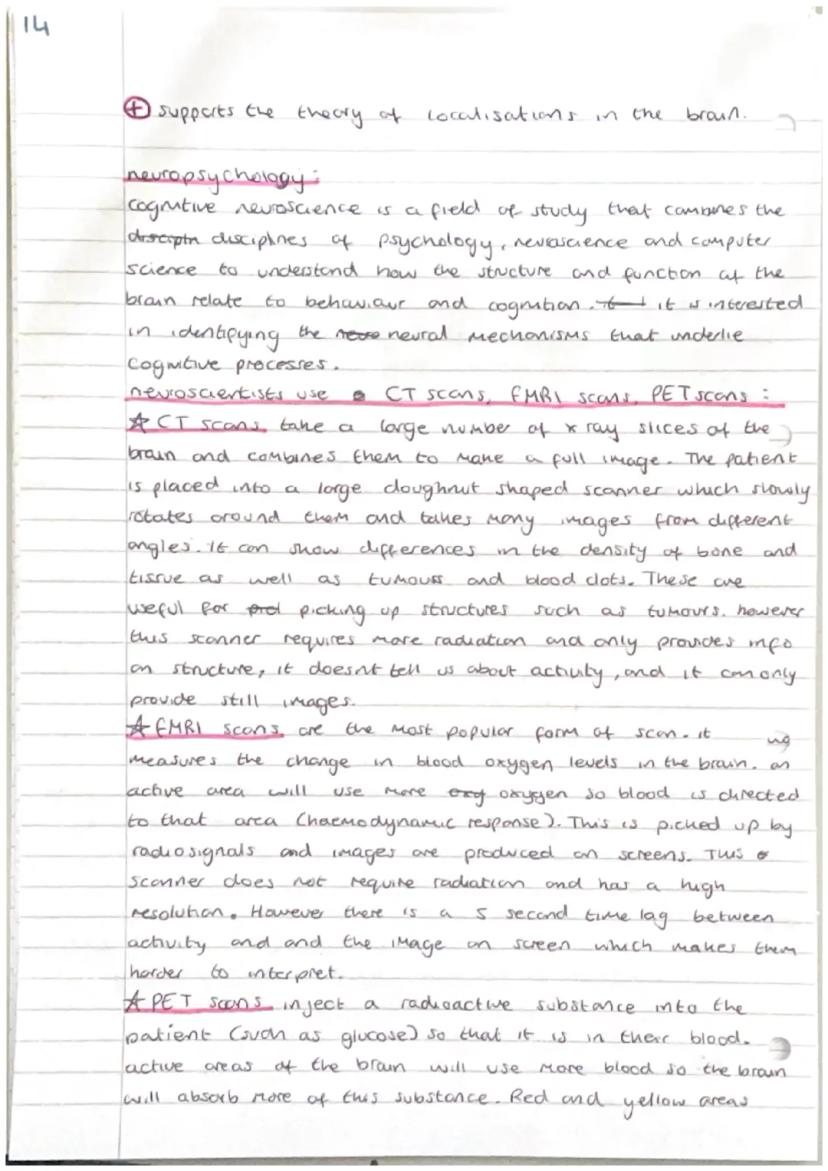 14
+ supports the theory of localisations in the brain.
neuropsychology:
Cognitive neuroscience is a field of study that combines the
disciplines of psychology, neuroscience and computer
science to understand how the structure and function of the
brain relate to behaviour and cognition. it is interested
in identifying the neural mechanisms that underlie
cognitive processes.
neuroscientists use CT scans, FMRI scans, PET scans :
☆ CT scans take a large number of x ray slices of the
brain and combines them to make a full image. The patient
is placed into a large doughnut shaped scanner which slowly
rotates around them and takes many images from different
angles. It can show differences in the density of bone and
tissue as well as tumours and blood clots. These are
useful for picking up structures such as tumours. however
this scanner requires more radiation and only provides info
on structure, it doesnt tell us about activity, and it can only
provide still images.
☆ FMRI scans are the most popular form of scan. it
measures the change in blood oxygen levels in the brain. an
active area will use more oxygen so blood is directed
to that area (haemodynamic response). This is picked up by
radiosignals and images are produced on screens. This
scanner does not require radiation and has a high
resolution. However there is a 5 second time lag between
activity and and the image on screen which makes them
harder to interpret.
☆ PET scans inject a radioactive substance into the
patient (such as glucose) so that it is in their blood.
active areas of the brain will use more blood so the brain
will absorb more of this substance. Red and yellow areas